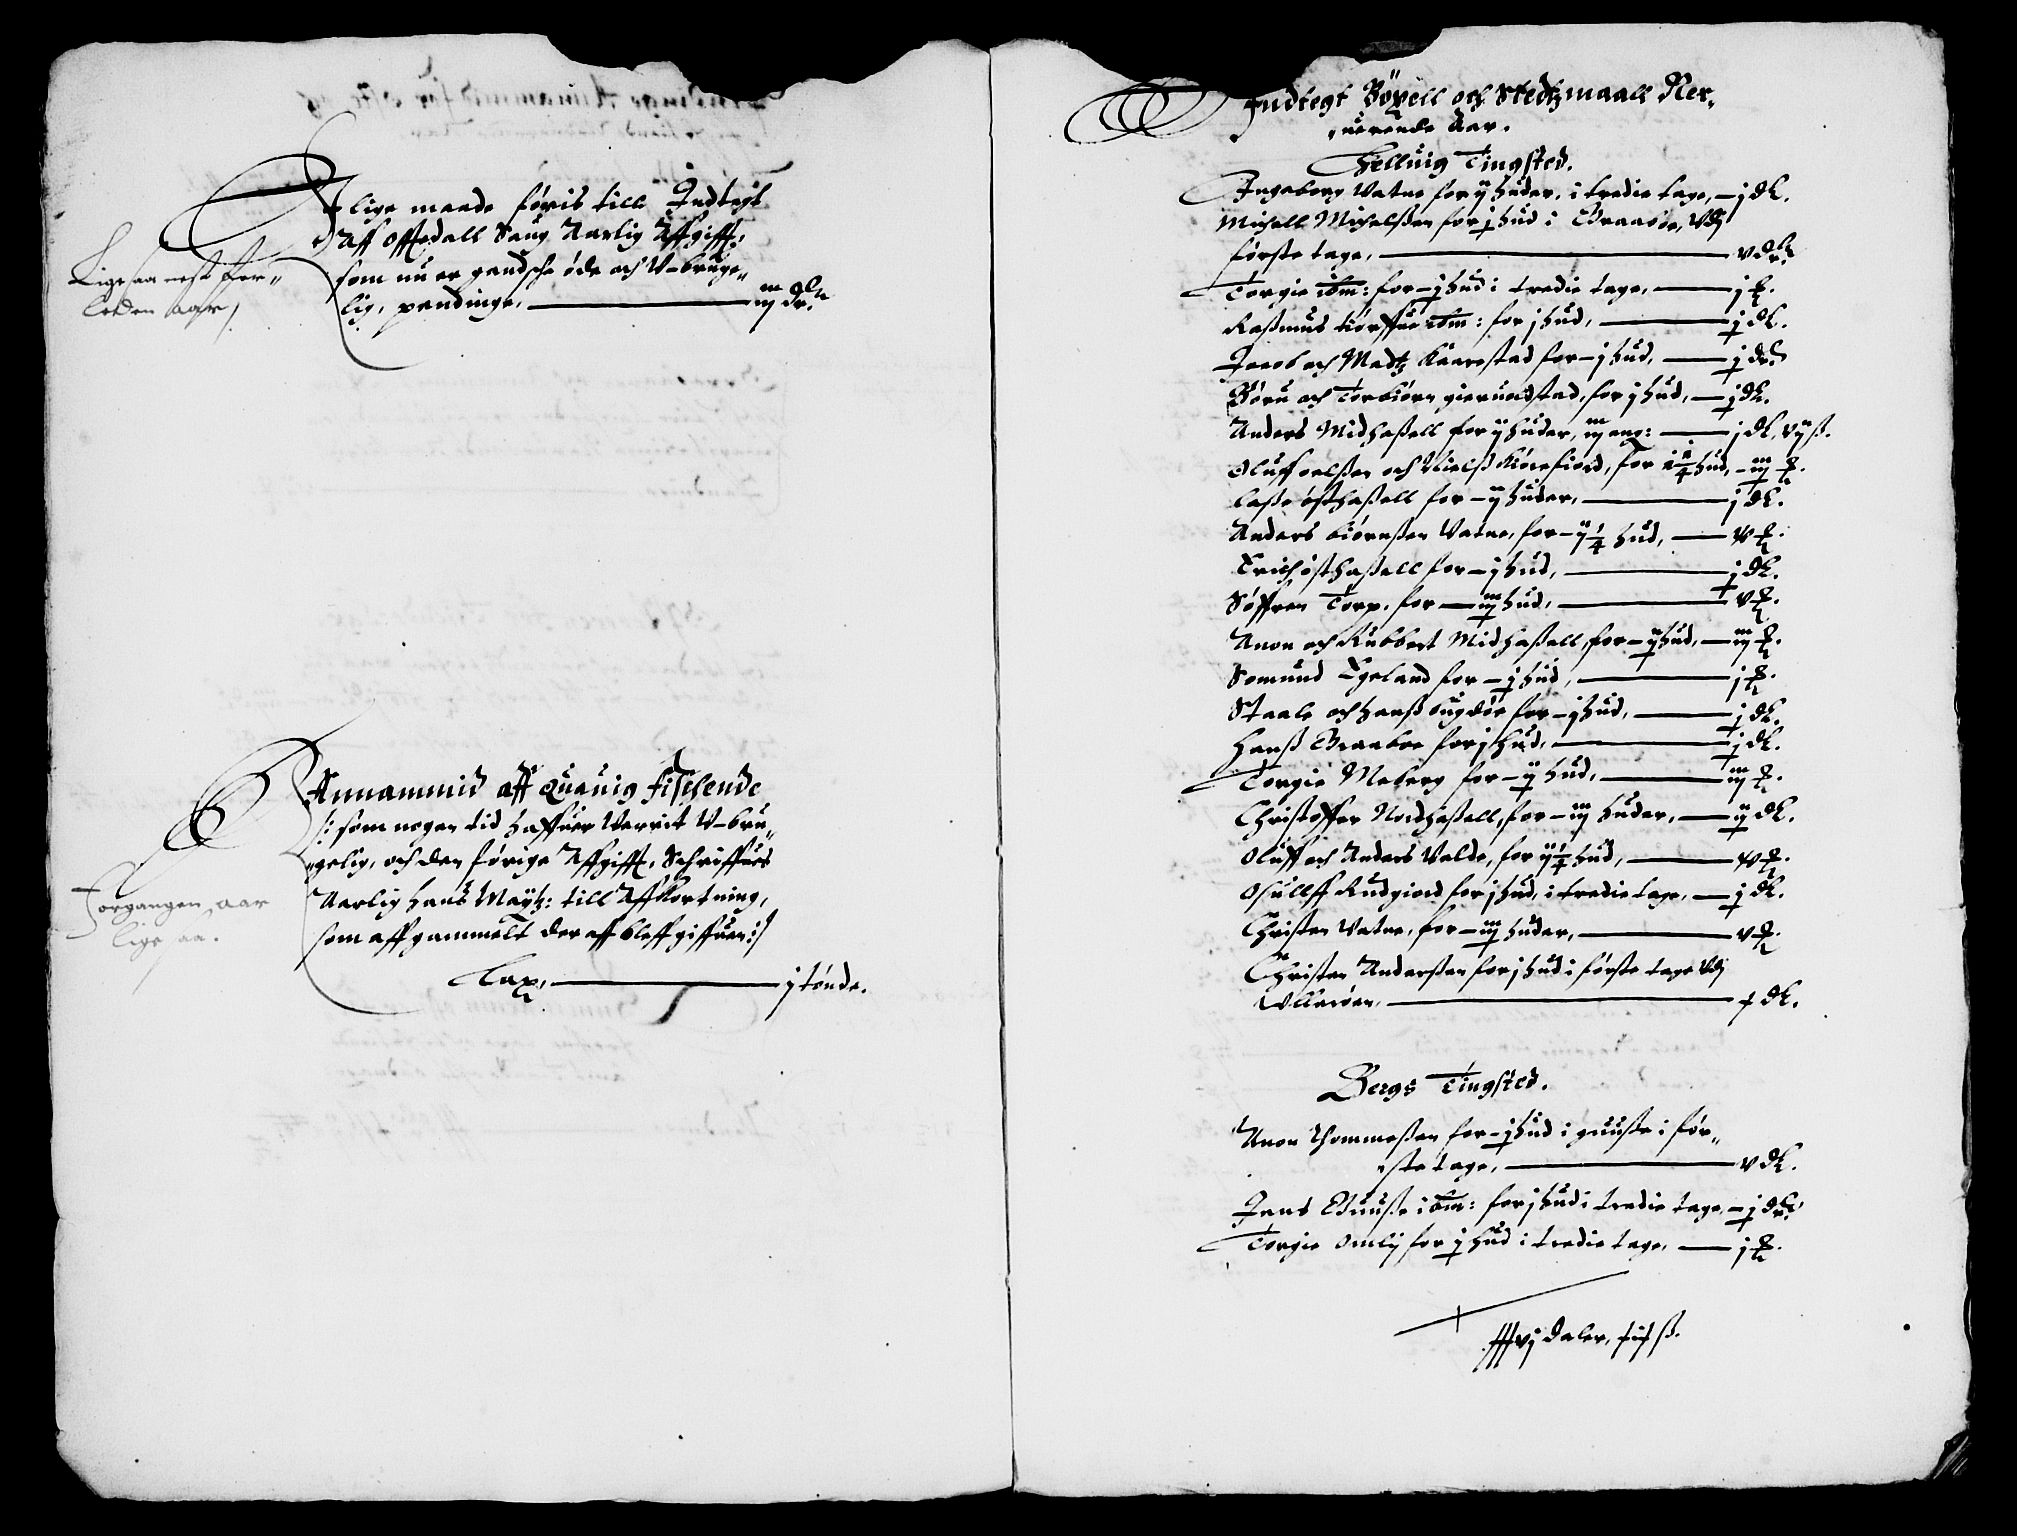 I lige maade føris till Indtegt
Aff Offtedall Saug Aarlig Affgifft,
som nu er gandsche øde och V-bruge„
lig, pendinge, — iij dlr.
Ligesaa nest for„
leden aar,
Annammid aff Quauig fischende
/: som nogen tid haffuer Verrit V-bru„
„gelig, och den förige Affgifft, Schriffues
Aarlig Hans Mayts: till Affkortning,
som aff gammelt der aff bleff giffuen :/
Lax, — j tönde.
Forgangen aar
lige saa.
Indtegt Böxell och Stedtzmaall Ner„
„uerende Aar.
Helluig Tingsted.
Ingeborg Vatne for ij huder, i tredie tage, — j dl.
Michell Michelssen for j hud i Braaböe, Vdj
förste tage, — v dlr.
Torgie ibm: for — j hud i tredie tage, — j
Rassmus ibm: for j hud, — j dl.
Jacob och Madtz Kaarestad for — j hud, — j dlr.
Böru och Torbiörn gieruoldstad, for j hud, — j dl.
Anders Midhassell for ij huder, iij eng: — j dl, vij ß.
Oluff oelssen och Nielss Kiörefiord, for 1 1/4 hud, — iij
Lasse østhassell for — ij huder, — j dl.
Anders Biörnssen Vatne, for — ij 1/4 hud, —
Erich østhassell for — j hud, — j dl.
Söffren Torp. for — iij hud, — v
Anon och Rubbert Midhassell, for — ij hud, — iij
Somund Egeland for — j hud, — j
Staale och Hanss bugdøe for — j hud, — j dl.
Hanss Braaboe for j hud, — j dl.
Torgie Meberg for — ij hud, — iij
Christoffer Nordhassell, for — iij huder, — ij dl.
Oluff och Anders Velde, for ij 1/4 hud, —
Osulff Rudgiord for j hud, i tredie tage, — j dl.
Christen Vatne, for — iij huder, — v
Christen Anderssen for j hud i förste tage Vdj
Ullerøen, — dl.
Bergs Tingsted.
Anon Thommessen for — j hud i guusse i för„
„ste tage, — v dl.
Jens Guusse ibm: for j hud i tredie tage, — j dlr.
Torgie Omlij for j hud i tredie tage, — j
vj daler, ß.